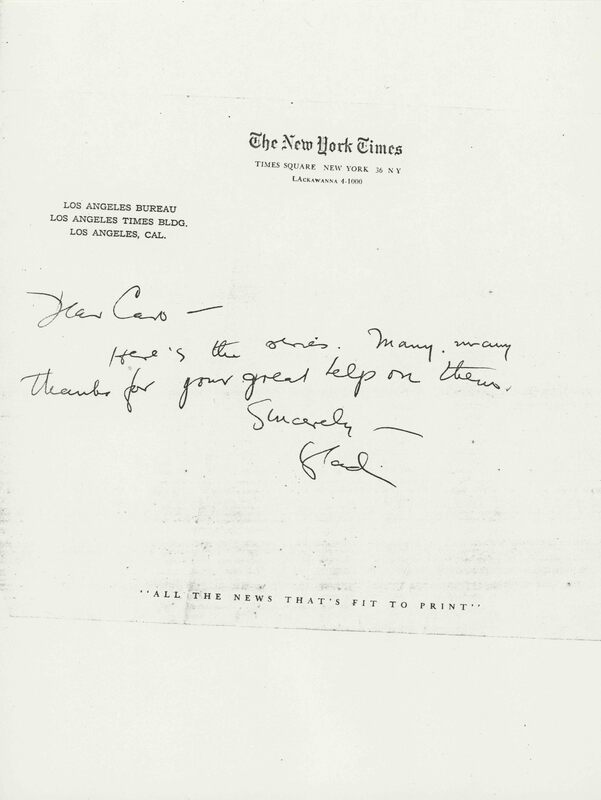 The New York Times
TIMES SQUARE NEW YORK 36 N Y
LAckawanna 4-1000
LOS ANGELES BUREAU
LOS ANGELES TIMES BLDG.
LOS ANGELES, CAL.
Dear Caro —
Here's the series. Many, many
thanks for your great help on them.
Sincerely —
Glad
"ALL THE NEWS THAT'S FIT TO PRINT"